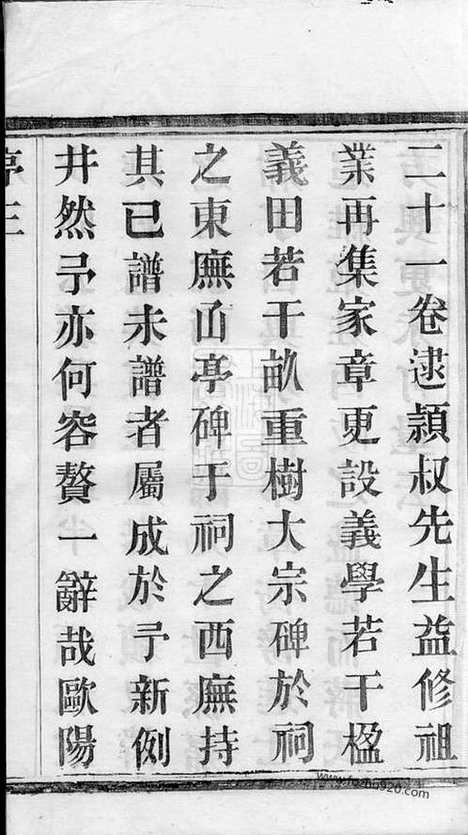 二十一卷逮頴叔先生益修祖
業再集家章更設義學若干楹
義田若干畝重樹大宗碑於祠
之東廡凾亭碑于祠之西廡持
其已譜未譜者屬成於予新例
井然予亦何容贅一辭哉歐陽
序三